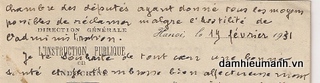 chambre des députés ayant donné tous les moyens
possibles de réclamer malgré l'hostilité de
l'administration.
DIRECTION GÉNÉRALE
Hanoi, le 19 février 1931
L'INSTRUCTION PUBLIQUE
Je te souhaite de tout cœur une bonne
santé et t'embrasse bien affectueusement
damtieumanh.vn